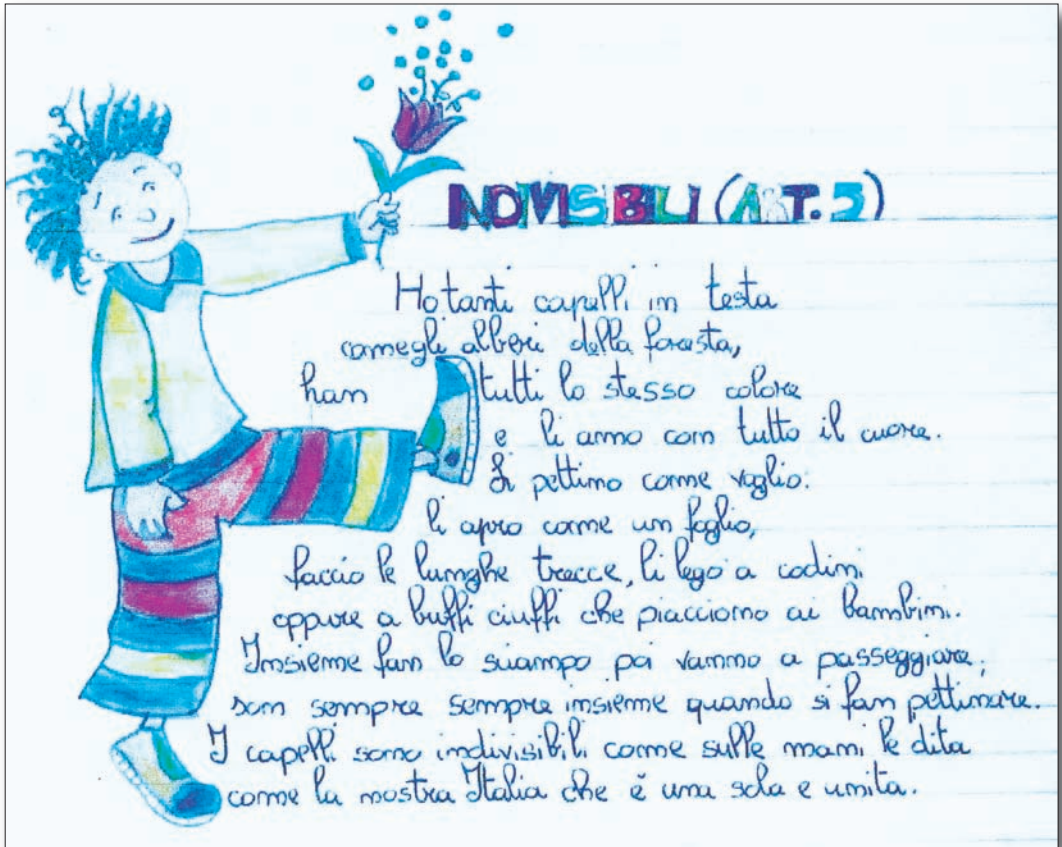 INDIVISIBILI (ART. 5)
Ho tanti capelli in testa
come gli alberi della foresta,
han tutti lo stesso colore
e li amo con tutto il cuore.
Li pettino come voglio:
li apro come un foglio,
faccio le lunghe trecce, li lego a codini
oppure a buffi ciuffi che piacciono ai bambini.
Insieme fan lo sciampo poi vanno a passeggiare,
son sempre sempre insieme quando si fan pettinare.
I capelli sono indivisibili come sulle mani le dita
come la nostra Italia che è una sola e unita.